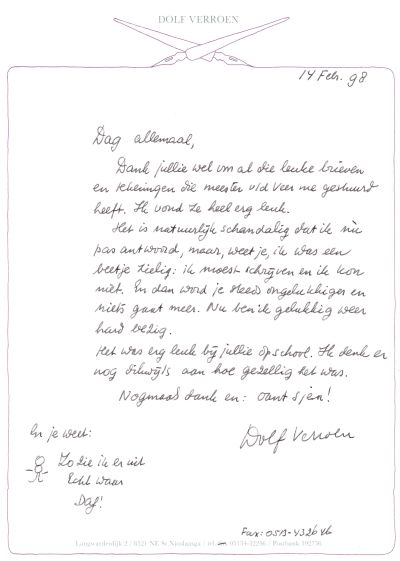 DOLF VERROEN
14 Febr. 98
Dag allemaal,
Dank jullie wel vm al die leuke brieven
en tekeningen die meester v/d Veer me gestuurd
heeft. Ik vond ze heel erg leuk.
Het is natuurlijk schandalig dat ik nù
pas antwoord, maar, weet je, ik was een
beetje zielig: ik moest schrijven en ik kon
niet. En dan word je steeds ongelukkiger en
niets gaat meer. Nu ben ik gelukkig weer
hard bezig.
Het was erg leuk bij jullie op school. Ik denk er
nog dikwijls aan hoe gezellig het was.
Nogmaals dank en: oant sjen!
Dolf Verroen
En je weet:
Zo zie ik er uit
Echt waar
Dag!
Langwarderdijk 2 / 8521 NE St Nicolaasga / tel. 05134-32296 / Postbank 192756
Fax: 0513-4326